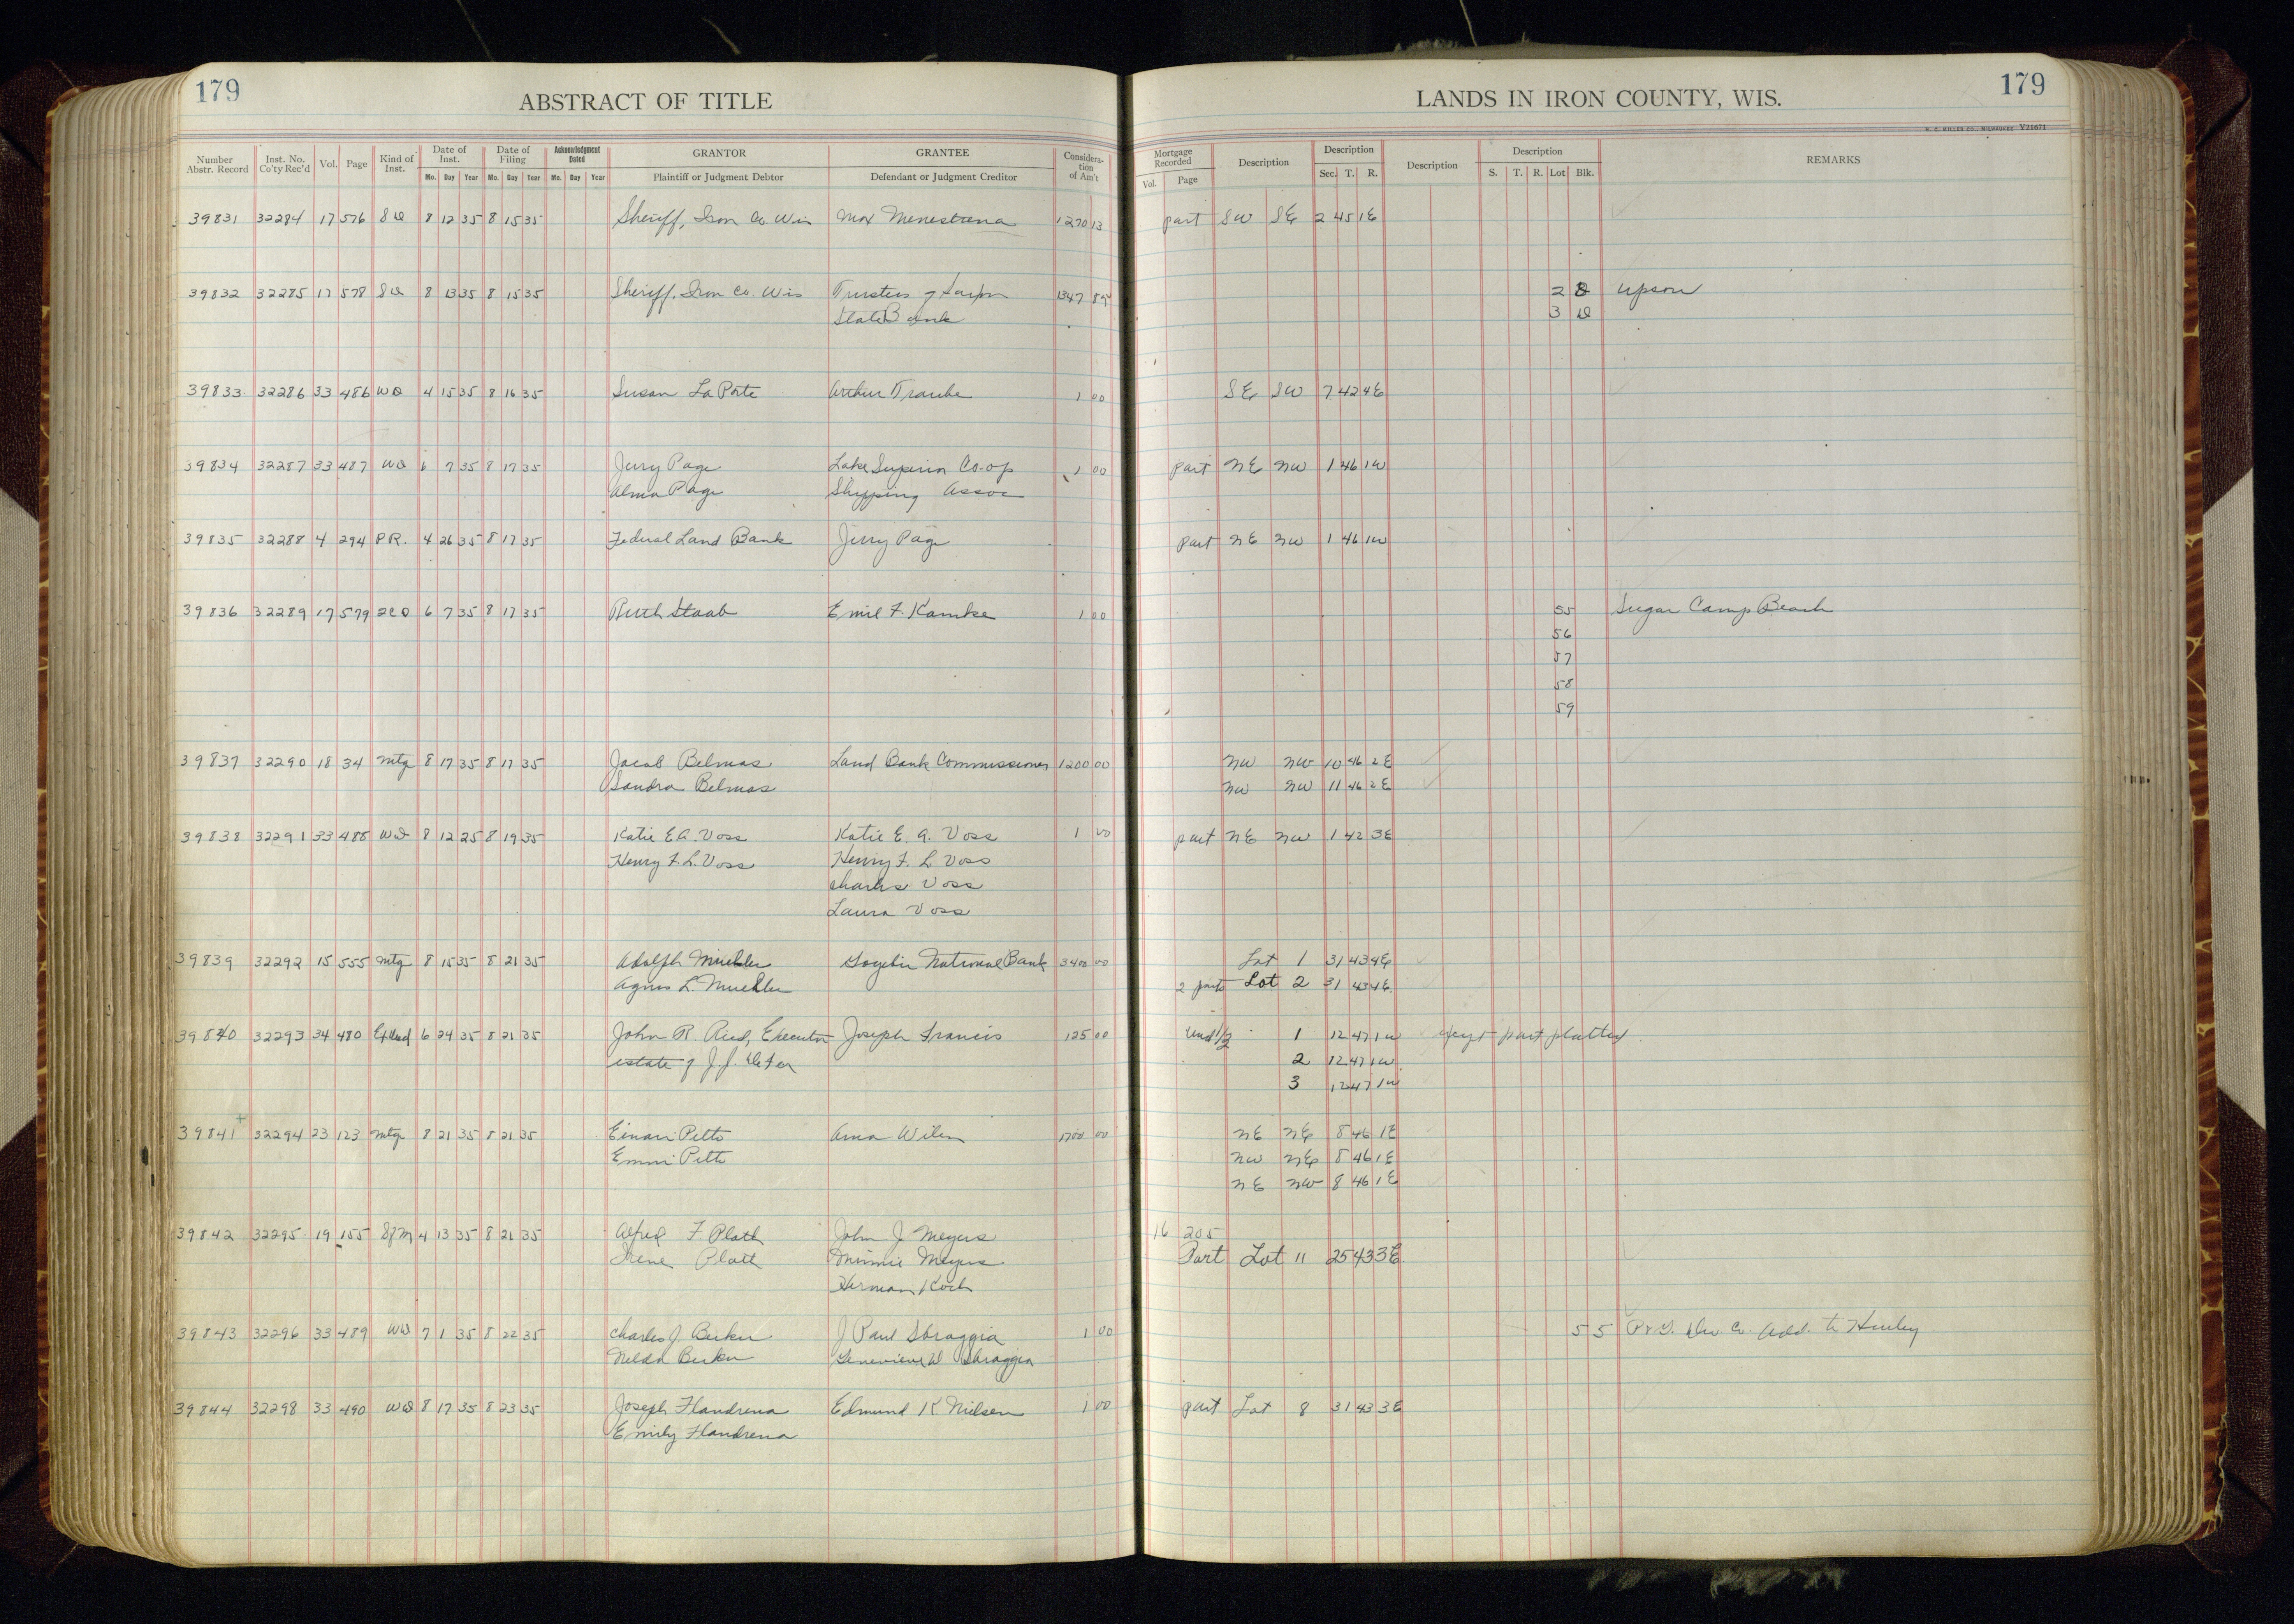 179
ABSTRACT OF TITLE
LANDS IN IRON COUNTY, WIS.
179
H. C. MILLER CO., MILWAUKEE Y21671
Number Abstr. Record Inst. No. Co'ty Rec'd Vol. Page Kind of Inst. Date of Inst. Mo. Day Year Date of Filing Mo. Day Year Acknowledgment Dated Mo. Day Year GRANTOR Plaintiff or Judgment Debtor GRANTEE Defendant or Judgment Creditor Considera-tion of Am't Mortgage Recorded Vol. Page Description Description Sec. T. R. Description Description S. T. R. Lot Blk. REMARKS
39831 32284 17 576 SD 8 12 35 8 15 35 Sheriff, Iron Co. Wis Max Menestrina 1270 13 part SW SE 2 45 1E
39832 32285 17 578 SD 8 13 35 8 15 35 Sheriff, Iron Co. Wis Trustees of 1347 85 2 8 Upson
State Bank 3 D
39833 32286 33 486 WD 4 15 35 8 16 35 Susan La Porte Arthur Traube 1 00 SE SW 7 42 4E
39834 32287 33 487 WD 6 7 35 8 17 35 Jerry Page Lake Superior Co-op 1 00 part NE NW 1 46 1W
Alma Page Shipping Assoc
39835 32288 4 294 P.R. 4 26 35 8 17 35 Federal Land Bank Jerry Page part NE NW 1 46 1W
39836 32289 17 579 QCD 6 7 35 8 17 35 Ruth Staab Emil F. Kamke 1 00 55 Sugar Camp Beach
56
57
58
59
39837 32290 18 34 Mtg 8 17 35 8 17 35 Jacob Belmas Land Bank Commissioner 1200 00 NW NW 10 46 2E
Sandra Belmas NW NW 11 46 2E
39838 32291 33 488 WD 8 12 25 8 19 35 Katie E.A. Voss Katie E. A. Voss 1 00 part NE NW 1 42 3E
Henry F. L. Voss Henry F. L. Voss
Charles Voss
Laura Voss
39839 32292 15 555 Mtg 8 15 35 8 21 35 Adolph Muehler Gogebic National Bank 3400 00 Lot 1 31 43 4E
Agnes L. Muehler 2 parts Lot 2 31 43 4E
39840 32293 34 480 Ex Deed 6 24 35 8 21 35 John R. Reid, Executor Joseph Francis 125 00 Und 1/2 1 12 47 1W except part platted
estate of J. J. Defer 2 12 47 1W
3 12 47 1W
39841 32294 23 123 Mtg 8 21 35 8 21 35 Einari Petts Anna Wilen 1700 00 NE NE 8 46 1E
Emmi Petts NW NE 8 46 1E
NE NW 8 46 1E
39842 32295 19 155 SfM 4 13 35 8 21 35 Alfred F Plath John J Meyers 16 205
Irene Plath Minnie Meyers Part Lot 11 25 43 3E
Herman Koch
39843 32296 33 489 WD 7 1 35 8 22 35 Charles J. Becker J Paul Sbraggia 1 00 5 5 P & G. Dev. Co. Add. to Hurley
Nelda Becker Genevieve W Sbraggia
39844 32298 33 490 WD 8 17 35 8 23 35 Joseph Flandrena Edmund K Nielsen 1 00 part Lot 8 31 43 3E
Emily Flandrena